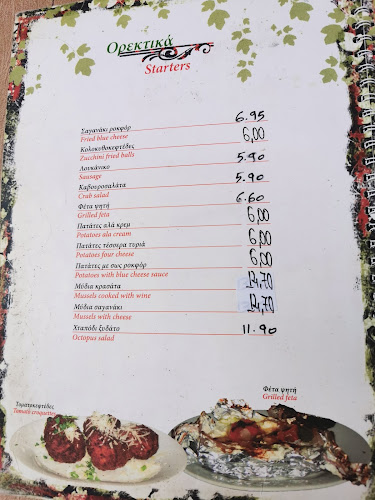 Ορεκτικά
Starters
Σαγανάκι ροκφόρ 6.95
Fried blue cheese
Κολοκυθοκεφτέδες 6,00
Zucchini fried balls
Λουκάνικο 5.90
Sausage
Καβουροσαλάτα 5.90
Crab salad
Φέτα ψητή 6.60
Grilled feta
Πατάτες αλά κρεμ 6,00
Potatoes ala cream
Πατάτες τέσσερα τυριά 6,00
Potatoes four cheese
Πατάτες με σως ροκφόρ 6,00
Potatoes with blue cheese sauce
Μύδια κρασάτα 14,70
Mussels cooked with wine
Μύδια σαγανάκι 14,70
Mussels with cheese
Χταπόδι ξυδάτο 11.90
Octopus salad
Τοματοκεφτέδες
Tomato croquettes
Φέτα ψητή
Grilled feta